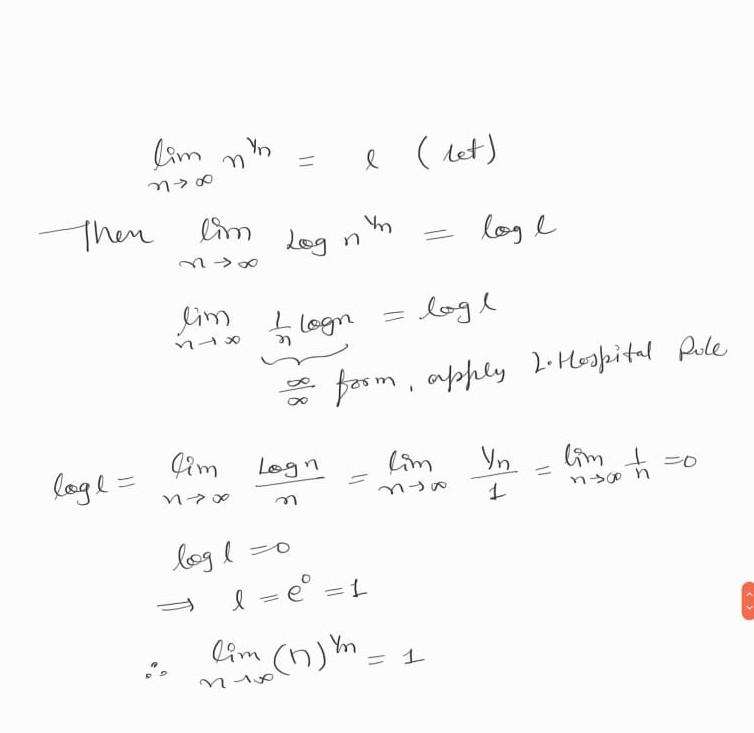 lim n→∞ n^1/n = l (let)
Then lim n→∞ Log n^1/n = log l
lim n→∞ 1/n logn = log l
∞/∞ form, apply L.Hospital Rule
log l = lim n→∞ Log n/n = lim n→∞ 1/n/1 = lim n→∞ 1/n = 0
log l = 0
⇒ l = e^0 = 1
∴ lim n→∞ (n)^1/n = 1